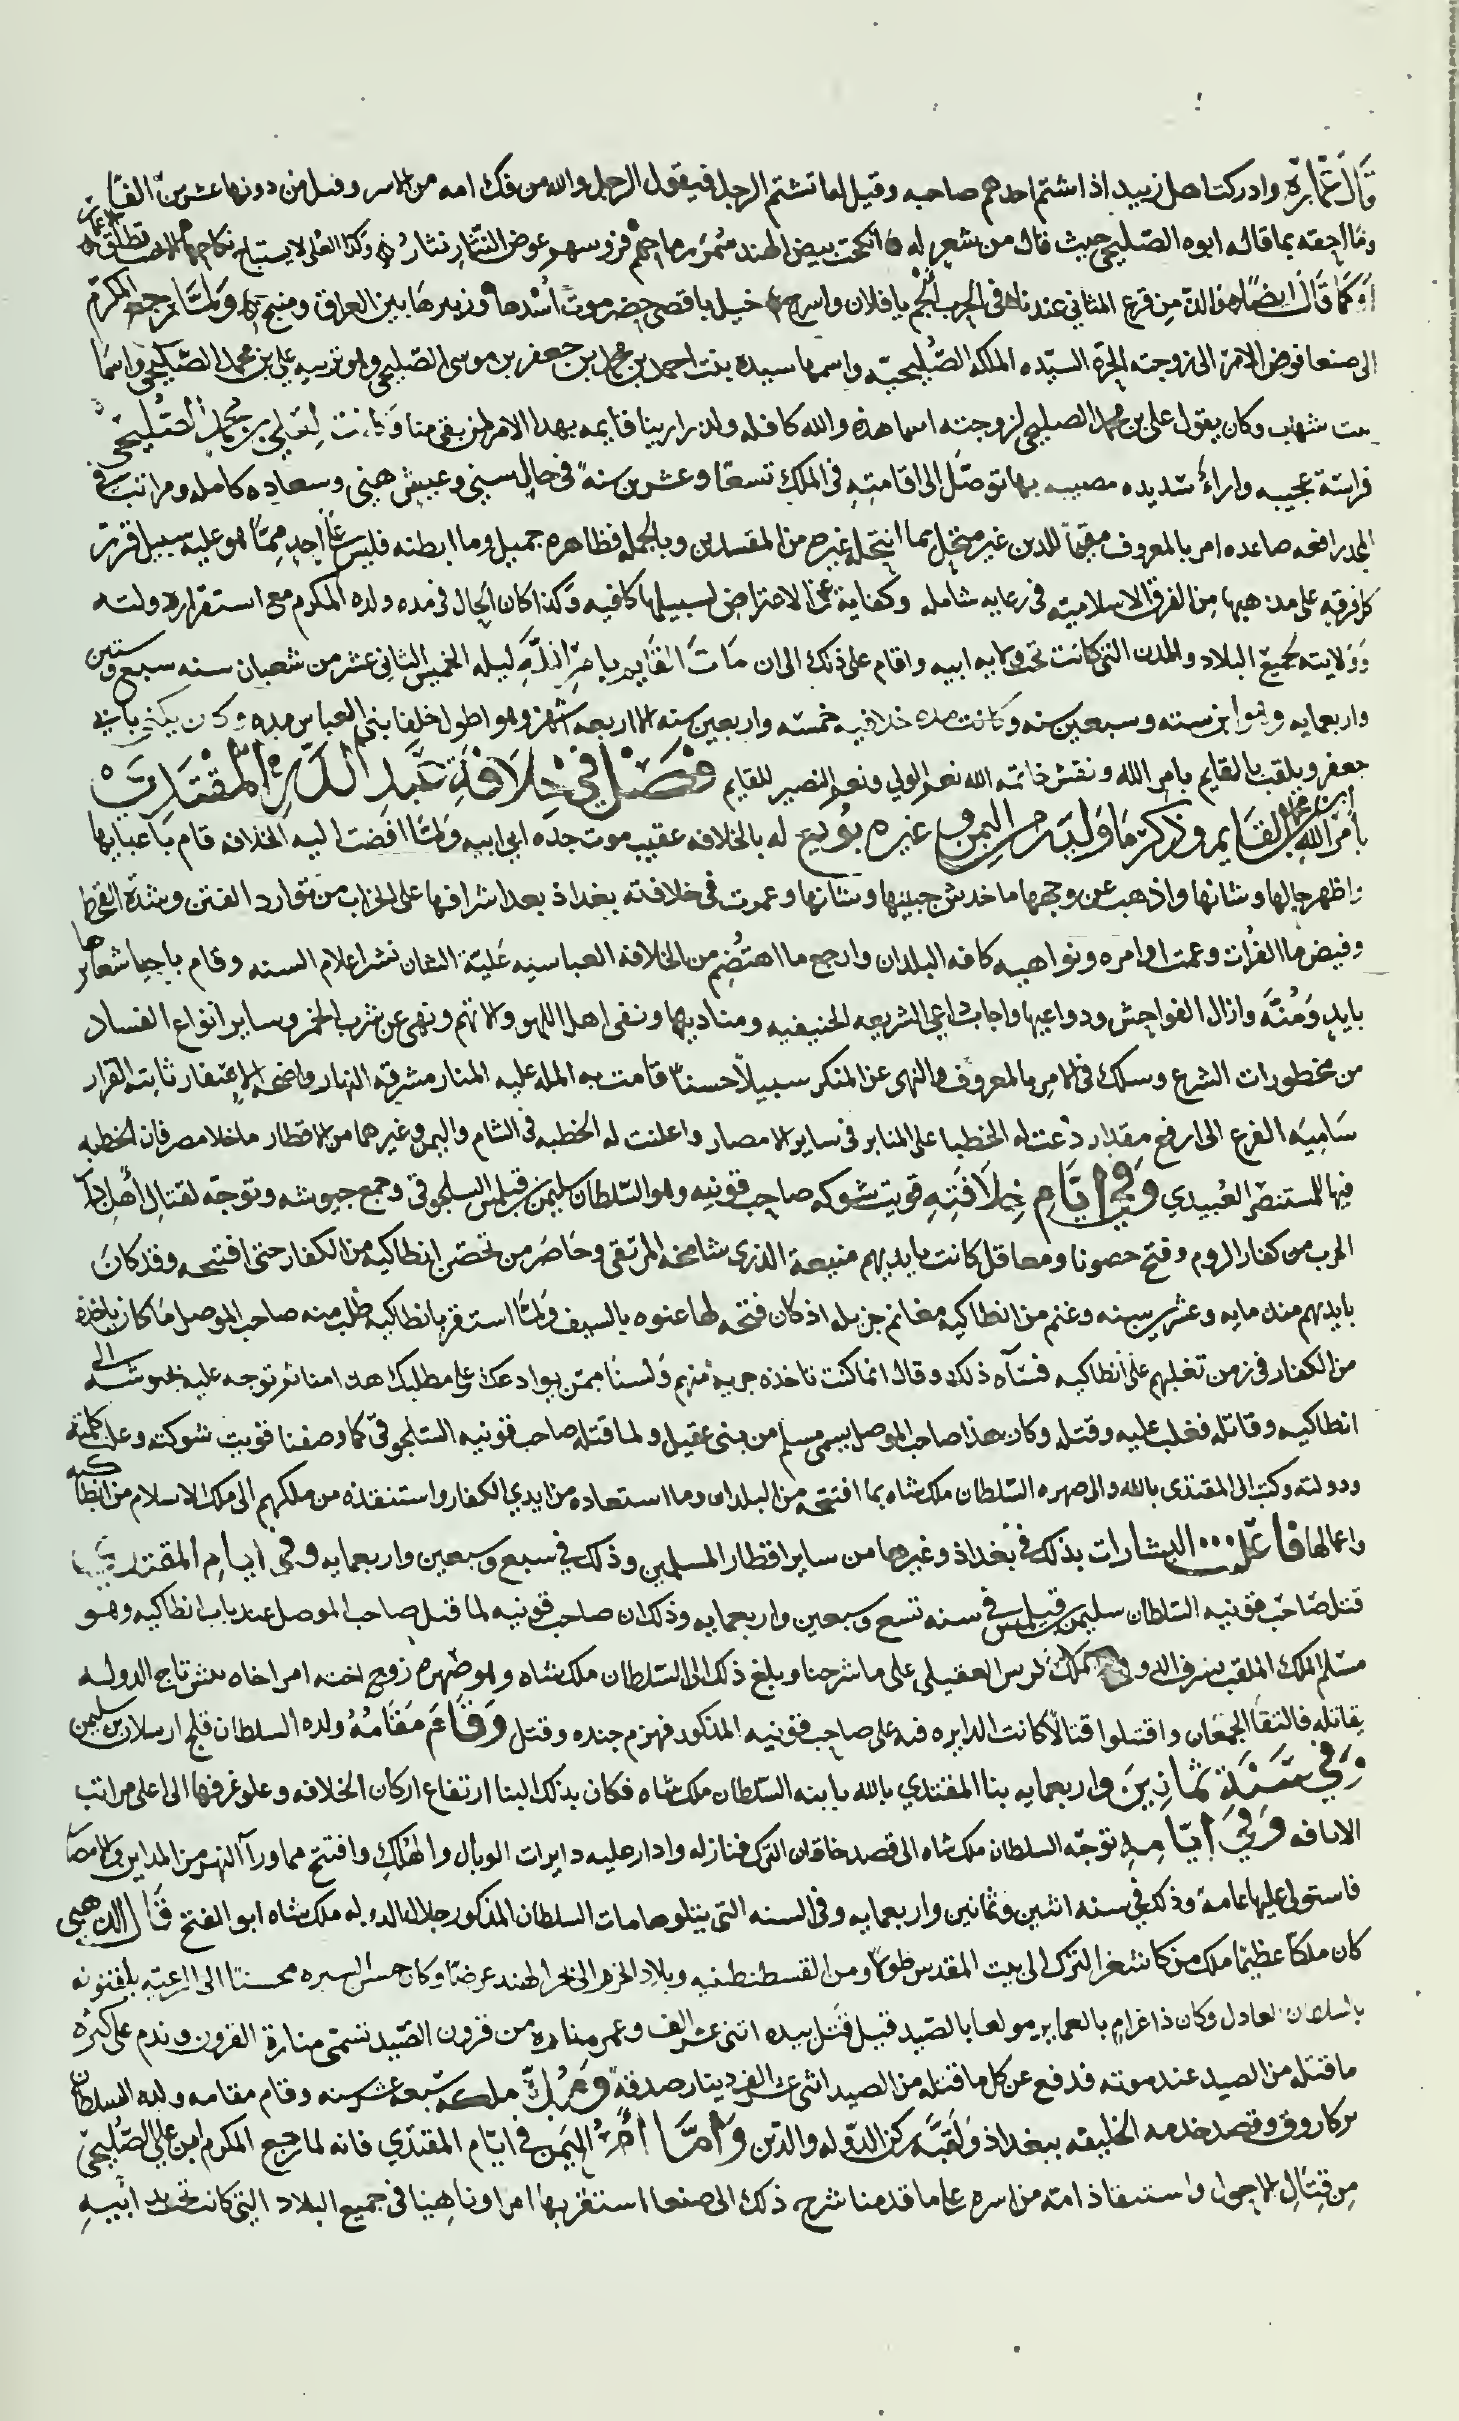 قال عمارة وادركت اهل زبيد اذا شتم احدهم صاحبه وقيل لما تشتم الرجل فيقول الرجل والله من فك امه من الاسر وقتل من دونها عشرين الفا
وما احقه بما قاله ابوه الصليحي حيث قال من شعر له انكحت بيض الهند سمر رماحهم فرؤسهم عوض النثار نثار وكذا العلى لا يستباح نكاحها الا بحيث تطلق الاعمار
وكما قال ايضا الذ من قرع المثاني عندنا في الحرب الجم يا فلان واسرج خيل باقصى حضرموت اشدها وزئيرها بين العراق ومنبج ولما رجع المكرم
الى صنعا فوض الامر الى زوجته الحرة السيده الملكه الصليحيه واسمها سيده بنت احمد بن محمد بن جعفر بن موسى الصليحي وهو تربيه علي بن محمد الصليحي واسما
بنت شهاب وكان يقول علي بن محمد الصليحي لزوجته اسما هذه والله كافله ذرارينا قايمه بهذا الامر لمن بقى منا وكانت لعلي بن محمد الصليحي
فراسة عجيبه واراء سديده مصيبه بها توصل الى اقامته في الملك تسعا وعشرين سنه في حال سني وعيش هني وسعاده كامله ومراتب في
المجد رافعه صاعده امر بالمعروف مقيما للدين غير منتحل بما انتحله غيره من المفسدين وبالجمله فظاهره جميل وما ابطنه فليس على احد مما هو عليه سبيل قرر
كل فرقه على مذهبها من الفرق الاسلاميه في رعايه شامله وكفاية عن الاعتراض لسبيلها كافيه وكذا كان الحال في مده ولده المكرم مع استقرار دولته
وولايته لجميع البلاد والمدن التي كانت تحت ولايه ابيه واقام على ذلك الى ان مات القايم بامر الله ليله الخميس الثاني عشر من شعبان سنه سبع وستين
واربعمايه وهو ابن سته وسبعين سنه وكانت مده خلافته خمسه واربعين سنه الا اربعه اشهر وهو اطول خلفا بني العباس مده وكان يكنى بابي
جعفر ويلقب بالقايم بامر الله ونقش خاتمه الله نعم الولي ونعم النصير للقايم فصل في خلافة عبد الله المقتدي
بامر الله ابن محمد بن القايم وذكر ما وليه من اليمن وغيره بويع له بالخلافه عقيب موت جده ابي ابيه ولما افضت اليه الخلافه قام باعبايها
واظهر جمالها وشانها واذهب عن وجهها ما خدش جبينها وشانها وعمرت في خلافته بغداذ بعد اشرافها على الخراب من توارد الفتن وشدة القحط
وفيض ما الفرات وعمت اوامره ونواهيه كافه البلدان وارجع ما اهتضم من الخلافه العباسيه علية الشان نشر اعلام السنه وقام باحيا شعارها
بايد ومنة وازال الفواحش ودواعيها واجاب داعي الشريعه الحنيفيه ومناديها ونفى اهل اللهو والاثم ونهى عن شرب الخمر وساير انواع الفساد
من محظورات الشرع وسلك في الامر بالمعروف والنهى عن المنكر سبيلا حسنا قامت به المله عليه المنار مشرقه النهار واضحه ثابته القرار
سامية الفرع الى ارفع مقدار دعت له الخطبا على المنابر في ساير الامصار واعلنت له الخطبه في الشام واليمن وغيرهما من الاقطار ماخلا مصر فان الخطبه
فيها للمستنصر العبيدي وفي ايام خلافته قويت شوكه صاحب قونيه وهو السلطان سليمن بن قتلمش السلجوقي وجمع جيوشه وتوجه لقتال اهل دار
الحرب من كفار الروم وفتح حصونا ومعاقل كانت بايديهم منيعة الذرى شامخه المرتقى وحاصر من تحصن بانطاكيه من الكفار حتى افتتحه وقد كان
بايديهم منذ مايه وعشرين سنه وغنم من انطاكيه مغانم جزيله اذ كان فتحه لها عنوه بالسيف ولما استقر بانطاكيه طلب منه صاحب الموصل ما كان ياخذه
من الكفار في زمن تغلبهم على انطاكيه فساه ذلك وقال انما كنت تاخذه جزية منهم ولسنا ممن يوادعك على مطلبك هذا منا ثم توجه عليه بجيوشه الى
انطاكيه وقاتله فغلب عليه وقتله وكان هذا صاحب الموصل يسمى مسلم من بني عقيل ولما قتله صاحب قونيه السلجوقي كما وصفنا قويت شوكته وعلت كلمته
ودولته وكتب الى المقتدى بالله والى صهره السلطان ملك شاه بما افتتحه من البلدان وما استعاده من ايدي الكفار واستنقذه من ملكهم الى ملك الاسلام من انطاكيه
واعمالها فاعلن البشارات بذلك في بغداذ وغيرها من ساير اقطار المسلمين وذلك في سبع وسبعين واربعمايه وفي ايام المقتدي
قتل صاحب قونيه السلطان سليمن بن قتلمش في سنه تسع وسبعين واربعمايه وذلك ان صاحب قونيه لما قتل صاحب الموصل عند باب انطاكيه وهو
مسلم الملك الملقب بشرف الدوله العقيلي على ما شرحنا وبلغ ذلك الى السلطان ملك شاه وهو صهره زوج اخته امر اخاه تتش تاج الدوله
بقاتله فالتقا الجمعان واقتتلوا قتالا كانت الدايره فيه على صاحب قونيه المذكور فهزم جنده وقتل وقام مقامه ولده السلطان قلج ارسلان بن سليمن
وفي سنة ثمانين واربعمايه بنا المقتدي بالله بابنه السلطان ملك شاه فكان بذلك البنا ارتفاع اركان الخلافه وعلو غرفها الى اعلى مراتب
الانافه وفي ايامه توجه السلطان ملك شاه الى قصد خاقان الترك فنازله وادار عليه دايرات الوبال والهلك وافتتح مما ورآ النهر من المداين والامصار
فاستولى عليها عامة وذلك في سنه اثنين وثمانين واربعمايه وفي السنه التي يتلوها مات السلطان المذكور جلال الدوله ملك شاه ابو الفتح قال الذهبي
كان ملكا عظيما ملك من كاشغر الترك الى بيت المقدس طولا ومن القسطنطنيه وبلاد الخزر الى بحر الهند عرضا وكان حسن السيره محسنا الى الرعيه يلقبونه
بالسلطان العادل وكان ذا غرام بالعماير مولعا بالصيد قيل قتل بيده اثنى عشر الف وعمر مناره من قرون الصيد تسمى منارة القرون وندم على كثره
ما قتله من الصيد عند موته فدفع عن كل ما قتله من الصيد اثنى عشر الف دينار صدقة ومدة ملكه سبعه عشر سنه وقام مقامه ولده السلطان
بركاروق وقصد خدمه الخليفه ببغداذ ولقبه ركن الدوله والدين واما امر اليمن في ايام المقتدي فانه لما رجع المكرم ابن علي الصليحي
من قتال الاحول واستنقاذ امه من اسره على ما قدمنا شرح ذلك الى صنعا استقر بها امرا وناهيا في جميع البلاد التي كانت تحت يد ابيه